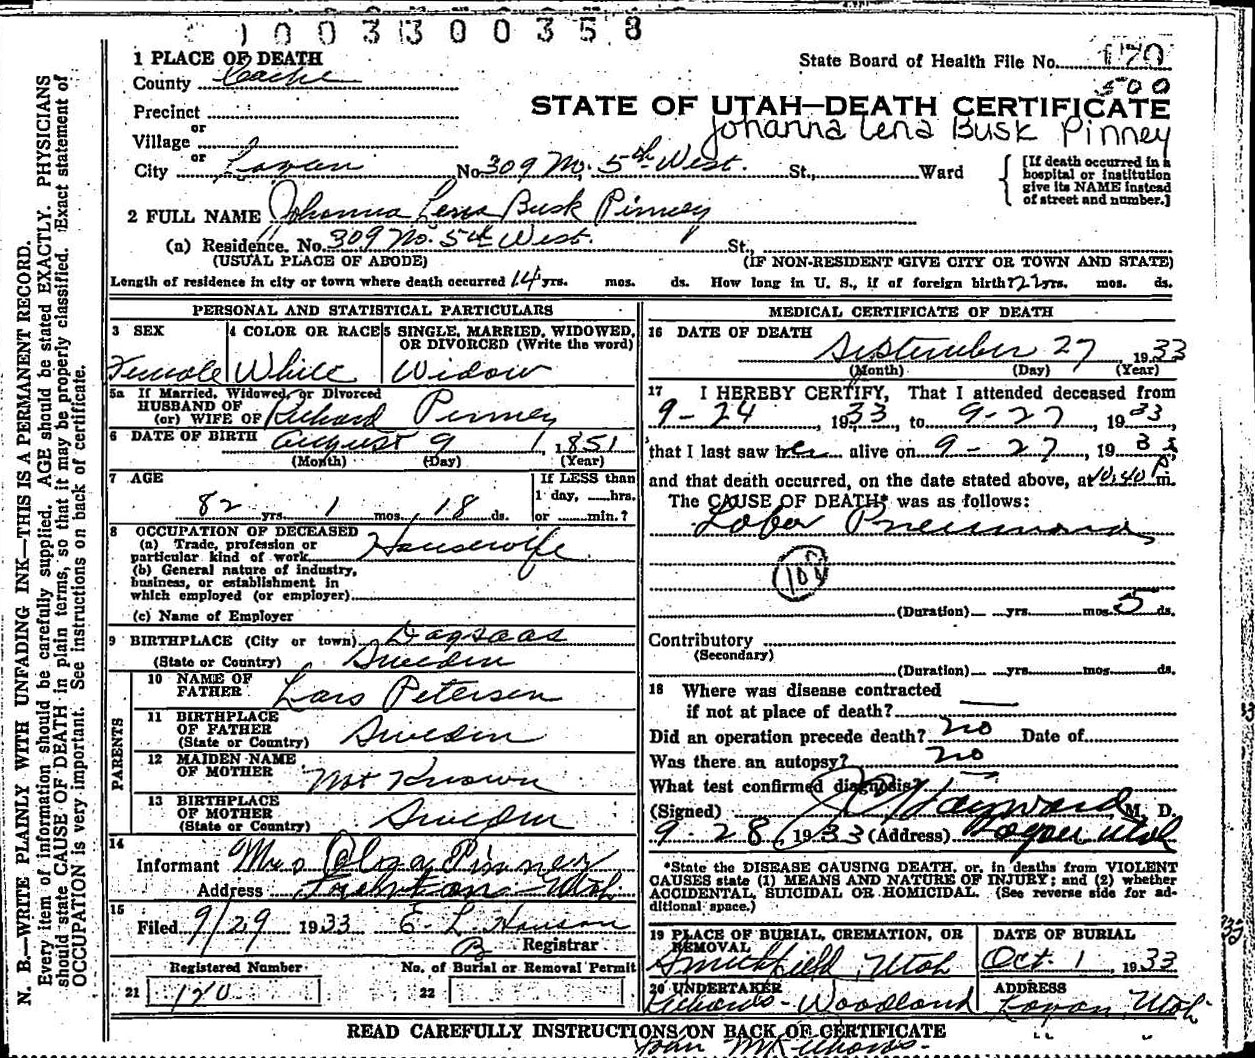 1003300358
1 PLACE OF DEATH
County Cache
State Board of Health File No. 170
500
STATE OF UTAH—DEATH CERTIFICATE
Johanna Lena Busk Pinney
Precinct
or
Village
or
City Logan No 309 No. 5th West. St., Ward
[If death occurred in a
hospital or institution
give its NAME instead
of street and number.]
2 FULL NAME Johanna Lena Busk Pinney
(a) Residence. No. 309 No. 5th West. St.,
(USUAL PLACE OF ABODE) (IF NON-RESIDENT GIVE CITY OR TOWN AND STATE)
Length of residence in city or town where death occurred 14 yrs. mos. ds. How long in U. S., if of foreign birth? yrs. mos. ds.
PERSONAL AND STATISTICAL PARTICULARS
3 SEX 4 COLOR OR RACE 5 SINGLE, MARRIED, WIDOWED,
OR DIVORCED (Write the word)
Female White Widow
5a If Married, Widowed, or Divorced
HUSBAND OF
(or) WIFE OF Richard Pinney
6 DATE OF BIRTH August 9, 1851
(Month) (Day) (Year)
7 AGE If LESS than
1 day, hrs.
82 yrs. 1 mos. 18 ds. or min.?
8 OCCUPATION OF DECEASED
(a) Trade, profession or
particular kind of work Housewife
(b) General nature of industry,
business, or establishment in
which employed (or employer)
(c) Name of Employer
9 BIRTHPLACE (City or town)
(State or Country) Sweden
PARENTS
10 NAME OF
FATHER Lars Petersen
11 BIRTHPLACE
OF FATHER
(State or Country) Sweden
12 MAIDEN NAME
OF MOTHER Not Known
13 BIRTHPLACE
OF MOTHER
(State or Country) Sweden
14
Informant Mrs Olga Pinney
Address Tremonton Utah
15
Filed 9/29 1933 E. L. Hanson
B Registrar
Registered Number No. of Burial or Removal Permit
21 170 22
MEDICAL CERTIFICATE OF DEATH
16 DATE OF DEATH
September 27, 1933
(Month) (Day) (Year)
17 I HEREBY CERTIFY, That I attended deceased from
9-24, 1933, to 9-27, 1933,
that I last saw her alive on 9-27, 1933
and that death occurred, on the date stated above, at 10:40 P.m.
The CAUSE OF DEATH* was as follows:
Lobar Pneumonia
108
(Duration) yrs. mos. 5 ds.
Contributory
(Secondary)
(Duration) yrs. mos. ds.
18 Where was disease contracted
if not at place of death?
Did an operation precede death? no Date of
Was there an autopsy? no
What test confirmed diagnosis?
(Signed) Hayward M. D.
9-28, 1933 (Address) Logan Utah
*State the DISEASE CAUSING DEATH, or, in deaths from VIOLENT
CAUSES state (1) MEANS AND NATURE OF INJURY; and (2) whether
ACCIDENTAL, SUICIDAL OR HOMICIDAL. (See reverse side for ad-
ditional space.)
19 PLACE OF BURIAL, CREMATION, OR
REMOVAL
Smithfield, Utah
DATE OF BURIAL
Oct. 1, 1933
20 UNDERTAKER
Richards-Woodland
ADDRESS
Logan, Utah
READ CAREFULLY INSTRUCTIONS ON BACK OF CERTIFICATE
N. B.—WRITE PLAINLY WITH UNFADING INK—THIS IS A PERMANENT RECORD.
Every item of information should be carefully supplied. AGE should be stated EXACTLY. PHYSICIANS
should state CAUSE OF DEATH in plain terms, so that it may be properly classified. Exact statement of
OCCUPATION is very important. See instructions on back of certificate.